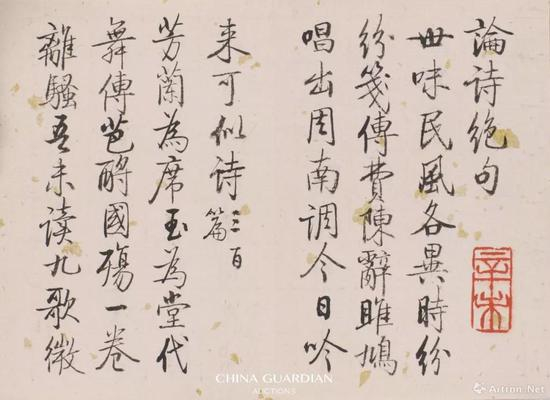 論诗绝句
世味民風各異時紛
紛箋傳費陳辭雎鳩
唱出周南調今日吟
来可似诗三百篇
芳蘭為席玉為堂代
舞傳芭酹國殤一卷
離騷吾未读九歌微
辛未
CHINA GUARDIAN
AUCTIONS
Artron.Net